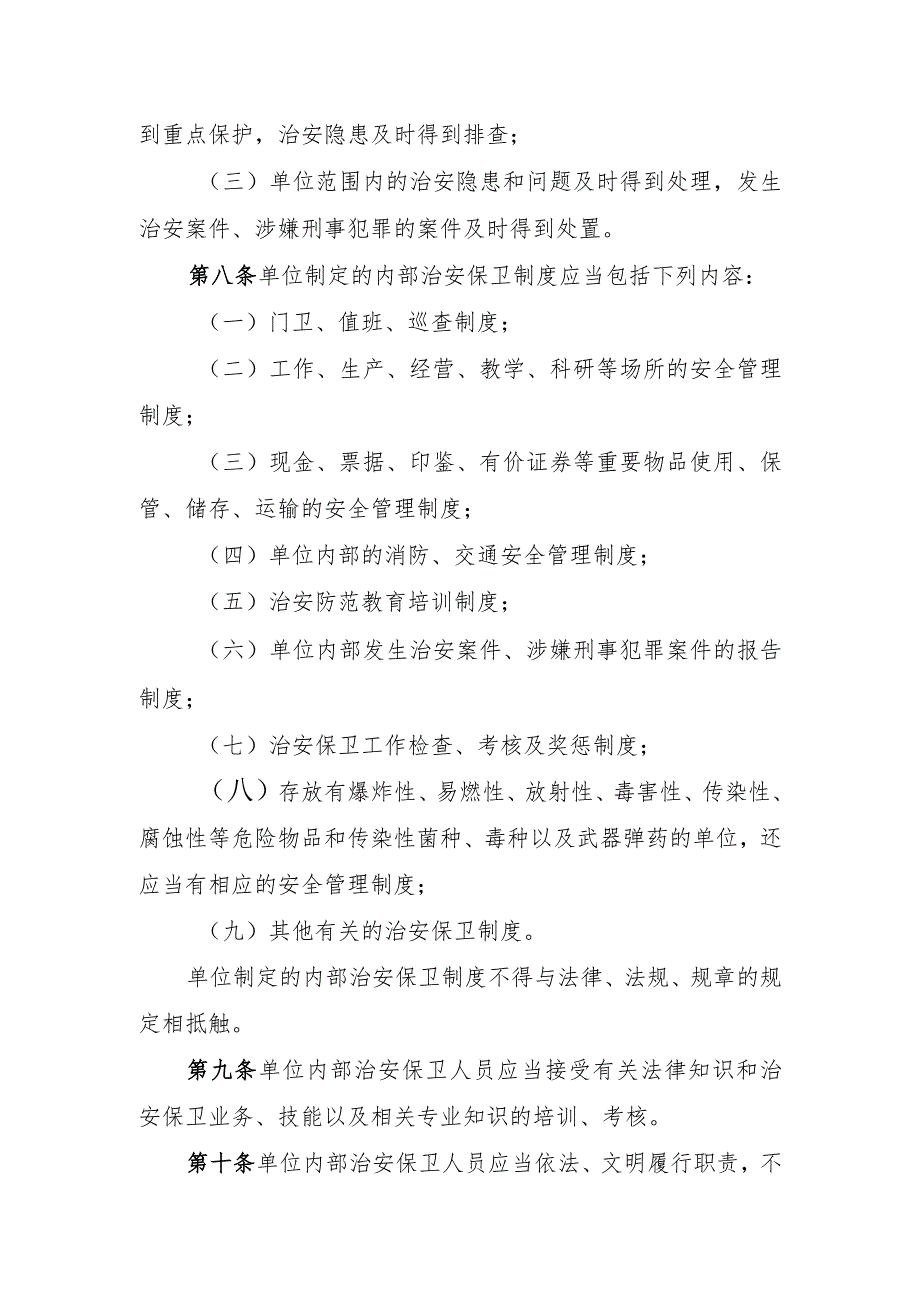 到重点保护，治安隐患及时得到排查；
（三）单位范围内的治安隐患和问题及时得到处理，发生
治安案件、涉嫌刑事犯罪的案件及时得到处置。
第八条单位制定的内部治安保卫制度应当包括下列内容：
（一）门卫、值班、巡查制度；
（二）工作、生产、经营、教学、科研等场所的安全管理
制度；
（三）现金、票据、印鉴、有价证券等重要物品使用、保
管、储存、运输的安全管理制度；
（四）单位内部的消防、交通安全管理制度；
（五）治安防范教育培训制度；
（六）单位内部发生治安案件、涉嫌刑事犯罪案件的报告
制度；
（七）治安保卫工作检查、考核及奖惩制度；
（八）存放有爆炸性、易燃性、放射性、毒害性、传染性、
腐蚀性等危险物品和传染性菌种、毒种以及武器弹药的单位，还
应当有相应的安全管理制度；
（九）其他有关的治安保卫制度。
单位制定的内部治安保卫制度不得与法律、法规、规章的规
定相抵触。
第九条单位内部治安保卫人员应当接受有关法律知识和治
安保卫业务、技能以及相关专业知识的培训、考核。
第十条单位内部治安保卫人员应当依法、文明履行职责，不